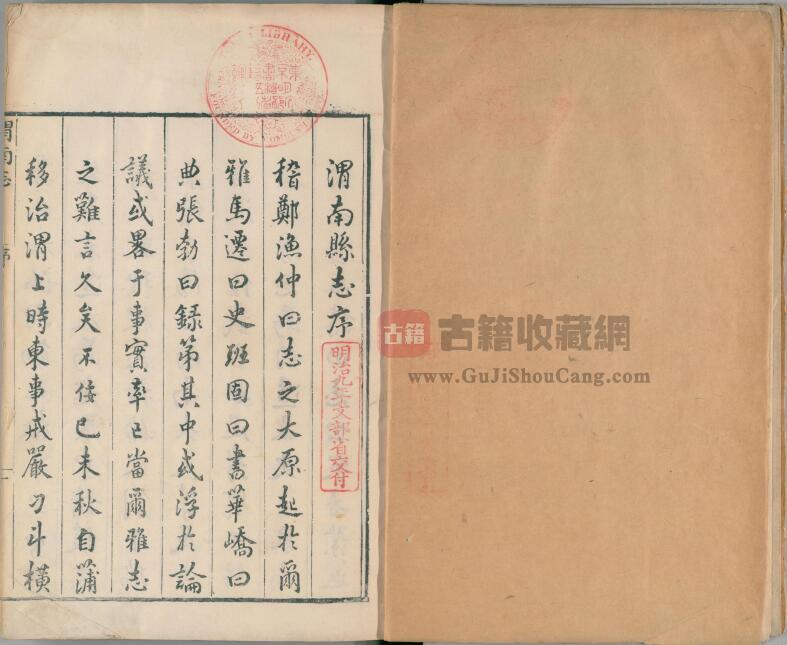 渭南縣志序
稽鄭漁仲曰志之大原起於爾
雅馬遷曰史班固曰書華嶠曰
典張勃曰録第其中或浮於論
議或畧于事實率已當爾雅志
之難言久矣不佞己未秋自蒲
移治渭上時東事戒嚴刁斗橫
渭南志
序
一
明治九年文部省交付
LIBRARY.
古籍
古籍收藏網
www.GuJiShouCang.com